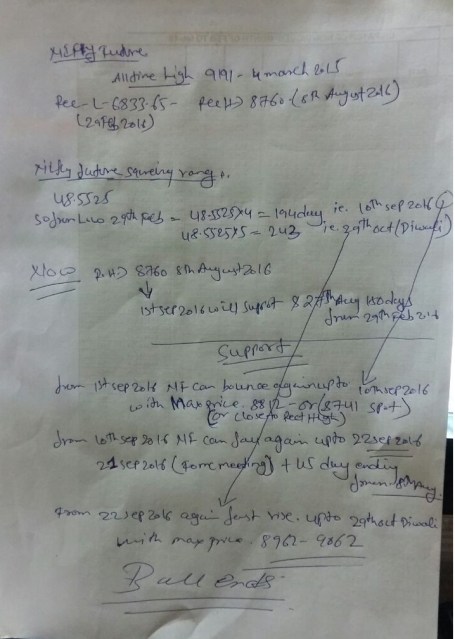 Nifty Future
Alltime high 9191 - 4 march 2015
Rec-L-6833.65- Rec H → 8760 - (8th August 2016)
(29 Feb, 2016)
Nifty future squaring range.
48.5525
So from Low 29th Feb = 48.5525x4 = 194 day ie. 10th sep 2016
48.5525x5 = 243 ie. 29th oct (Diwali)
Now R.H → 8760 8th August 2016
1st sep 2016 will Support & 27th Aug 180 days
from 29th Feb 2016
Support
from 1st sep 2016 NF can bounce again upto 10th sep 2016
with Max price. 8812 - or (8741 spot)
(or close to Rect High)
from 10th sep 2016 NF can fall again upto 22 sep 2016
21 sep 2016 (Fomc meeting) + 45 day ending
from 8th Aug.
From 22 sep 2016 again fast rise. upto 29th oct Diwali
with max price. 8962 - 9062
Bull ends.